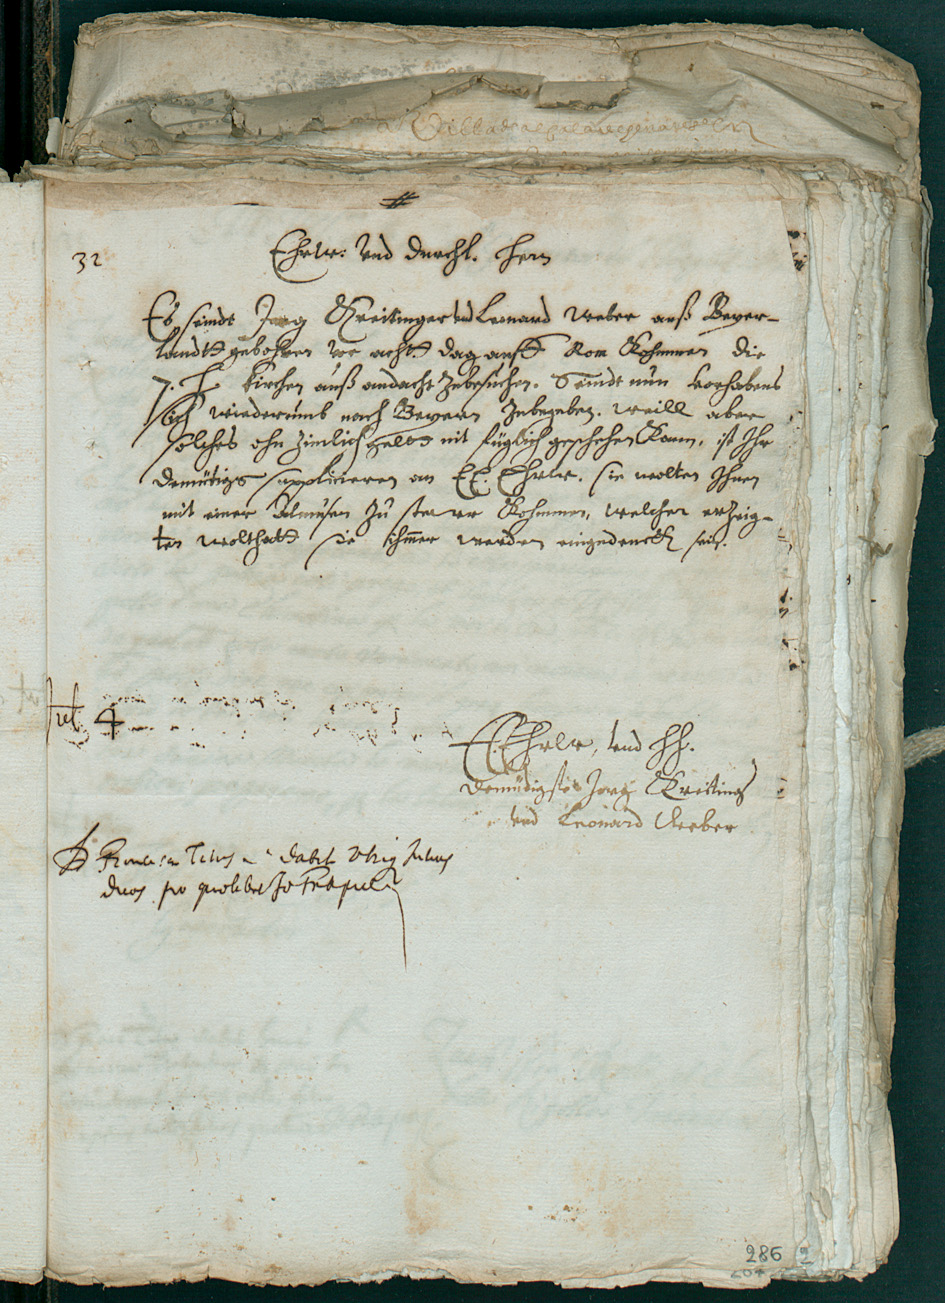 32
Ehrw: vnd durchl. Herr
Es seindt Jorg Kreitinger vnd Leonard Weber auß Beyer-
landt gebohren vor acht dag auff Rom Kohmmen die
7. H. Kirchen auß andacht zubesuchen. Seindt nun vorhabens
sich wiederumb nach Beyern zubegeben, weill aber
solches ohn zimlich gelt nit füglich geschehen Kann, ist Ihr
demütigs supplicieren an EE. Ehrw. sie wolten Ihnen
mit einer Almusen zu steuer Kohmmen, welcher erzeig-
ten wolthatt sie ihmmer werden eingedenck sein.
Jul. 4
E. Ehrw. vnd HH.
demüdigste Jorg Kreiting
vnd Leonard Weber
D. dabit Julios
duos pro quolibet
286